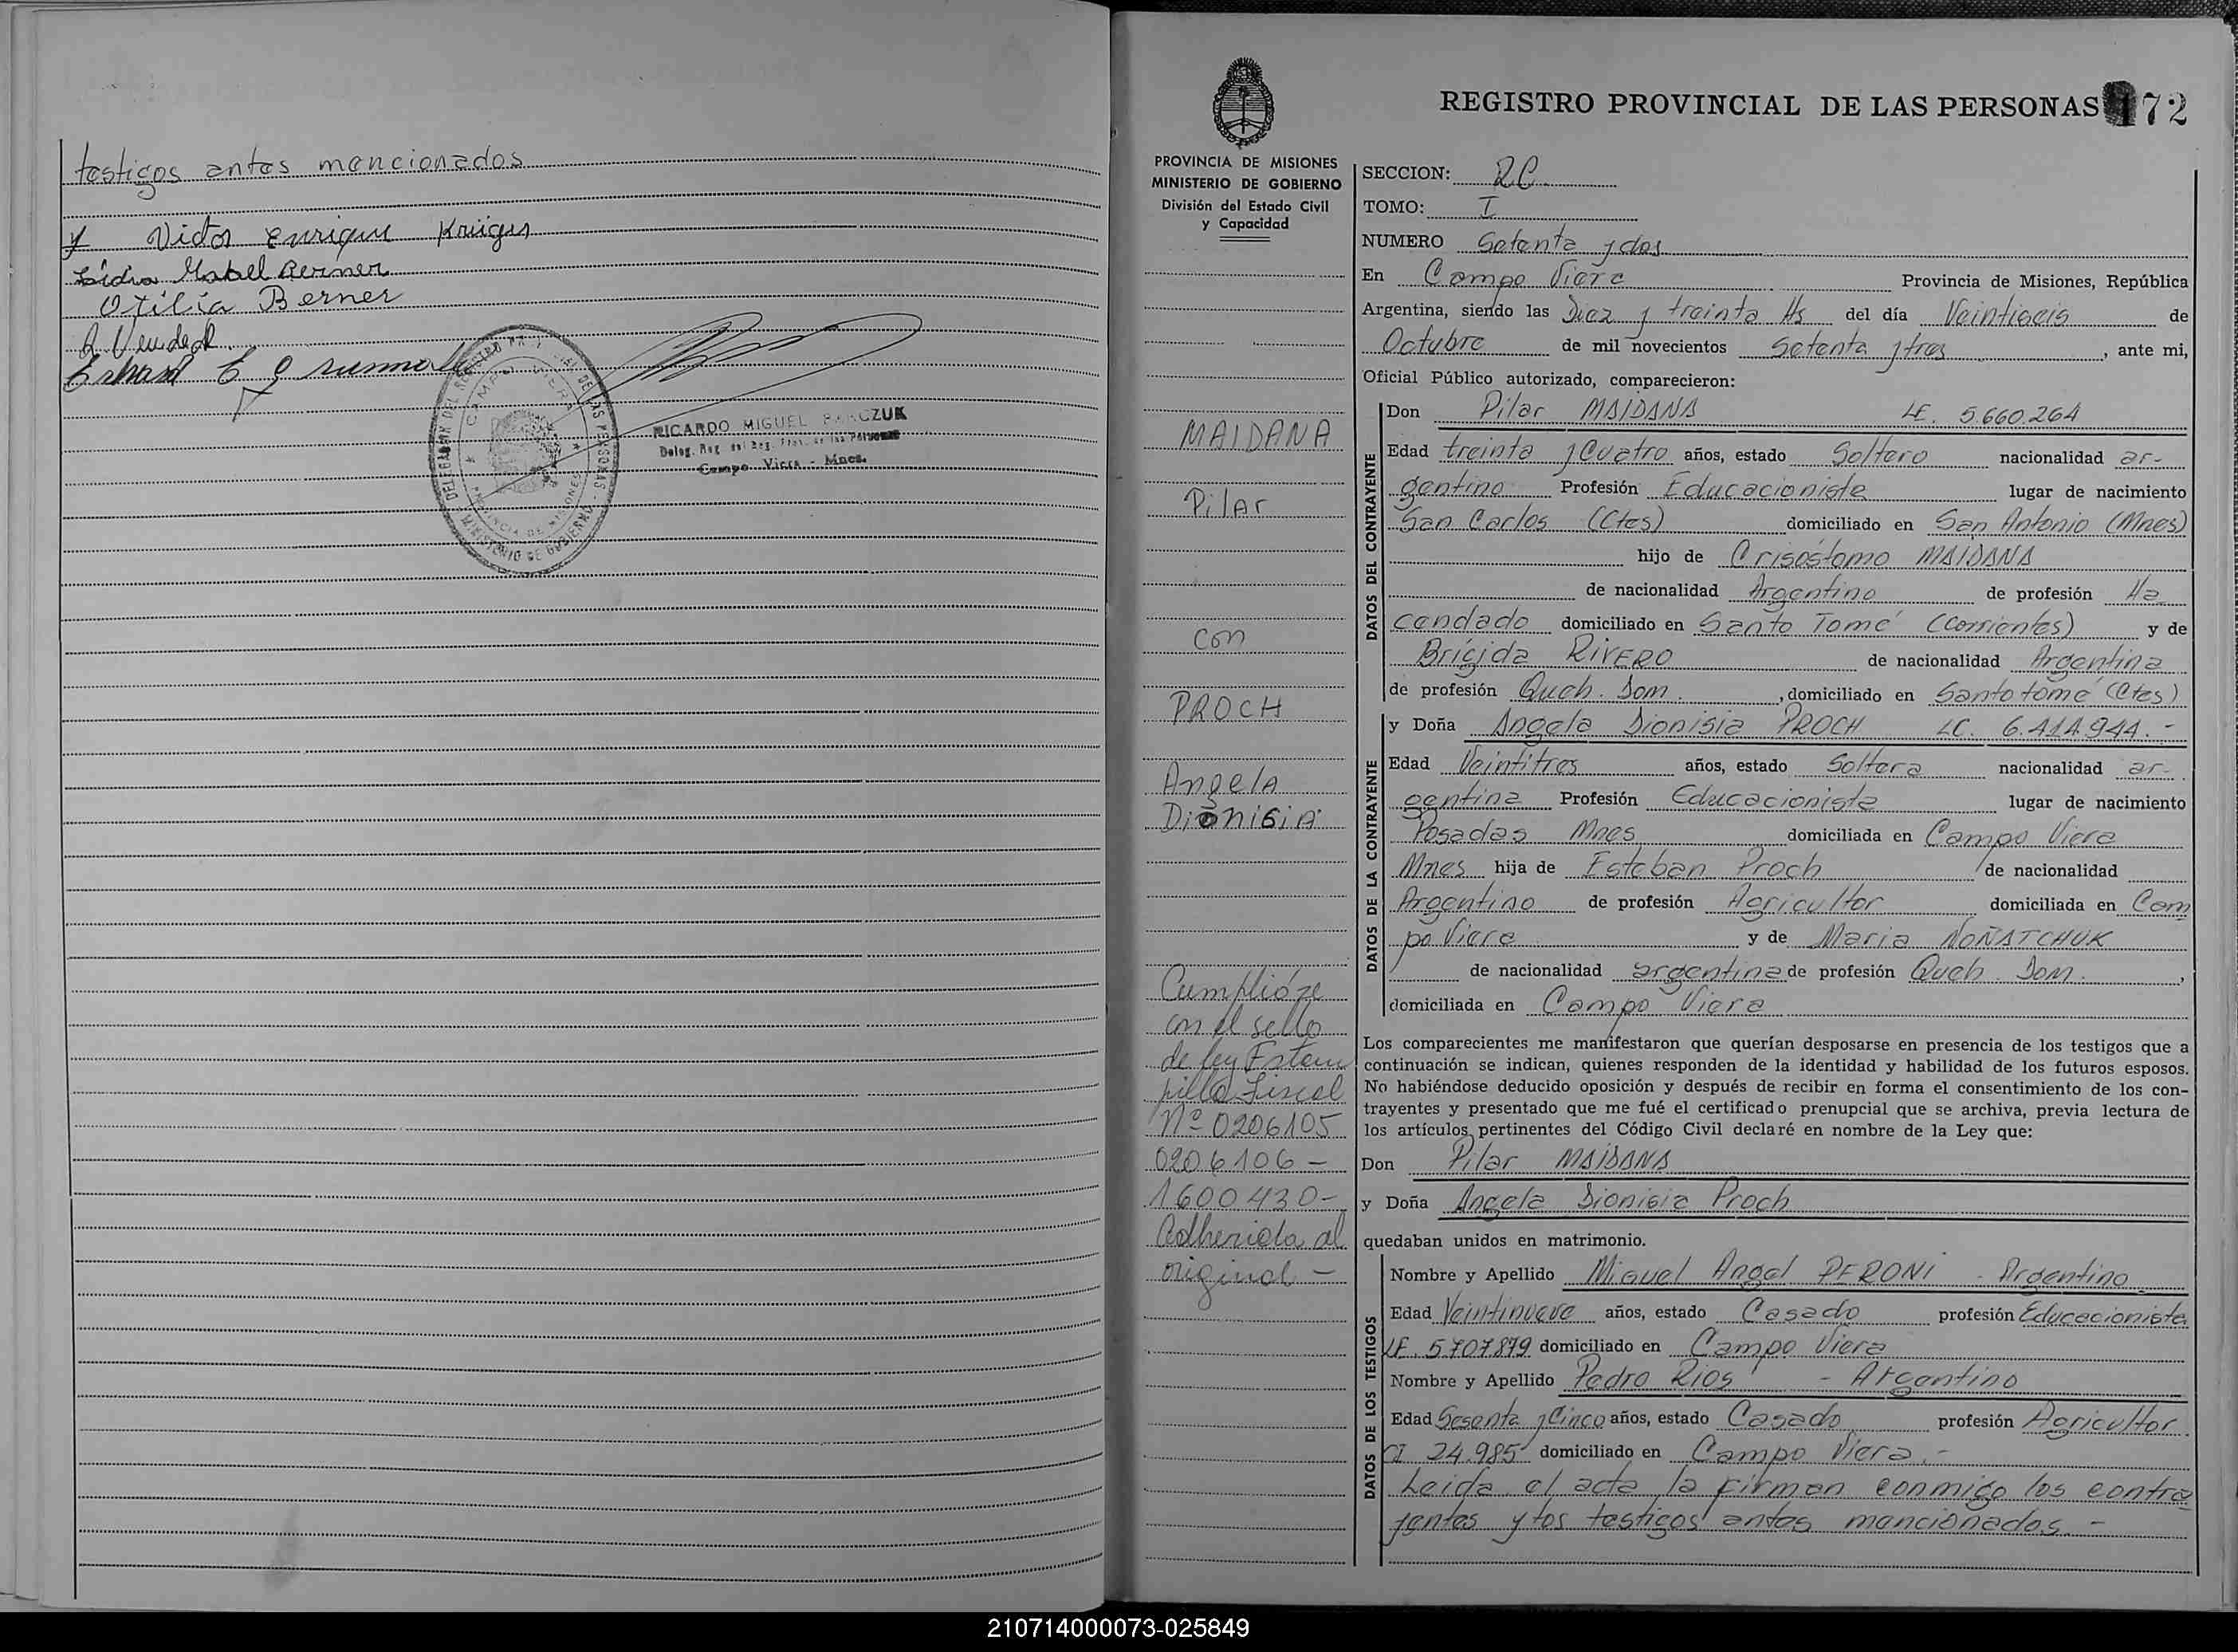 testigos antes mencionados
y Victor Enrique Krüger
Lidia Mabel Berner
Otilia Berner
RICARDO MIGUEL
Deleg. Reg. del Reg. Prov. de las Personas
Campo Viera - Mnes.
DELEGACION DEL REGISTRO PROVINCIAL DE LAS PERSONAS
CAMPO VIERA
PROVINCIA DE MISIONES
MINISTERIO DE GOBIERNO
PROVINCIA DE MISIONES
MINISTERIO DE GOBIERNO
División del Estado Civil
y Capacidad
MAIDANA
Pilar
con
PROCH
Angela
Dionisia
Cumplióse
con el sello
de ley Estam
pilla Fiscal
Nº 0206105
0206106 -
1600430-
Adherida al
original -
REGISTRO PROVINCIAL DE LAS PERSONAS 172
SECCION: RC.
TOMO: I
NUMERO Setenta y dos
En Campo Viera Provincia de Misiones, República
Argentina, siendo las Diez y treinta Hs del día Veintiseis de
Octubre de mil novecientos setenta y tres, ante mi,
Oficial Público autorizado, comparecieron:
DATOS DEL CONTRAYENTE
Don Pilar MAIDANA LE. 5.660.264
Edad treinta y Cuatro años, estado Soltero nacionalidad ar-
gentino Profesión Educacionista lugar de nacimiento
San Carlos (Ctes) domiciliado en San Antonio (Mnes)
hijo de Crisóstomo MAIDANA
de nacionalidad Argentino de profesión Ha
cendado domiciliado en Santo Tomé (Corrientes) y de
Brígida RIVERO de nacionalidad Argentina
de profesión Queh. Dom. , domiciliado en Santo tomé (Ctes)
DATOS DE LA CONTRAYENTE
y Doña Angela Dionisia PROCH LC. 6.414.944.-
Edad Veintitres años, estado Soltera nacionalidad ar-
gentina Profesión Educacionista lugar de nacimiento
Posadas Mnes domiciliada en Campo Viera
Mnes hija de Esteban Proch de nacionalidad
Argentino de profesión Agricultor domiciliada en Cam
po Viera y de Maria NOÑATCHUK
de nacionalidad argentina de profesión Queh. Dom. ,
domiciliada en Campo Viera
Los comparecientes me manifestaron que querían desposarse en presencia de los testigos que a
continuación se indican, quienes responden de la identidad y habilidad de los futuros esposos.
No habiéndose deducido oposición y después de recibir en forma el consentimiento de los con-
trayentes y presentado que me fué el certificado prenupcial que se archiva, previa lectura de
los artículos pertinentes del Código Civil declaré en nombre de la Ley que:
Don Pilar MAIDANA
y Doña Angela Dionisia Proch
quedaban unidos en matrimonio.
DATOS DE LOS TESTIGOS
Nombre y Apellido Miguel Angel PERONI - Argentino
Edad Veintinueve años, estado Casado profesión Educacionista
LE. 5.707.879 domiciliado en Campo Viera
Nombre y Apellido Pedro Rios - Argentino
Edad Sesenta y Cinco años, estado Casado profesión Agricultor
CI 24.985 domiciliado en Campo Viera.-
Leida el acta la firman conmigo los contra
yentes y los testigos antes mencionados.-
210714000073-025849